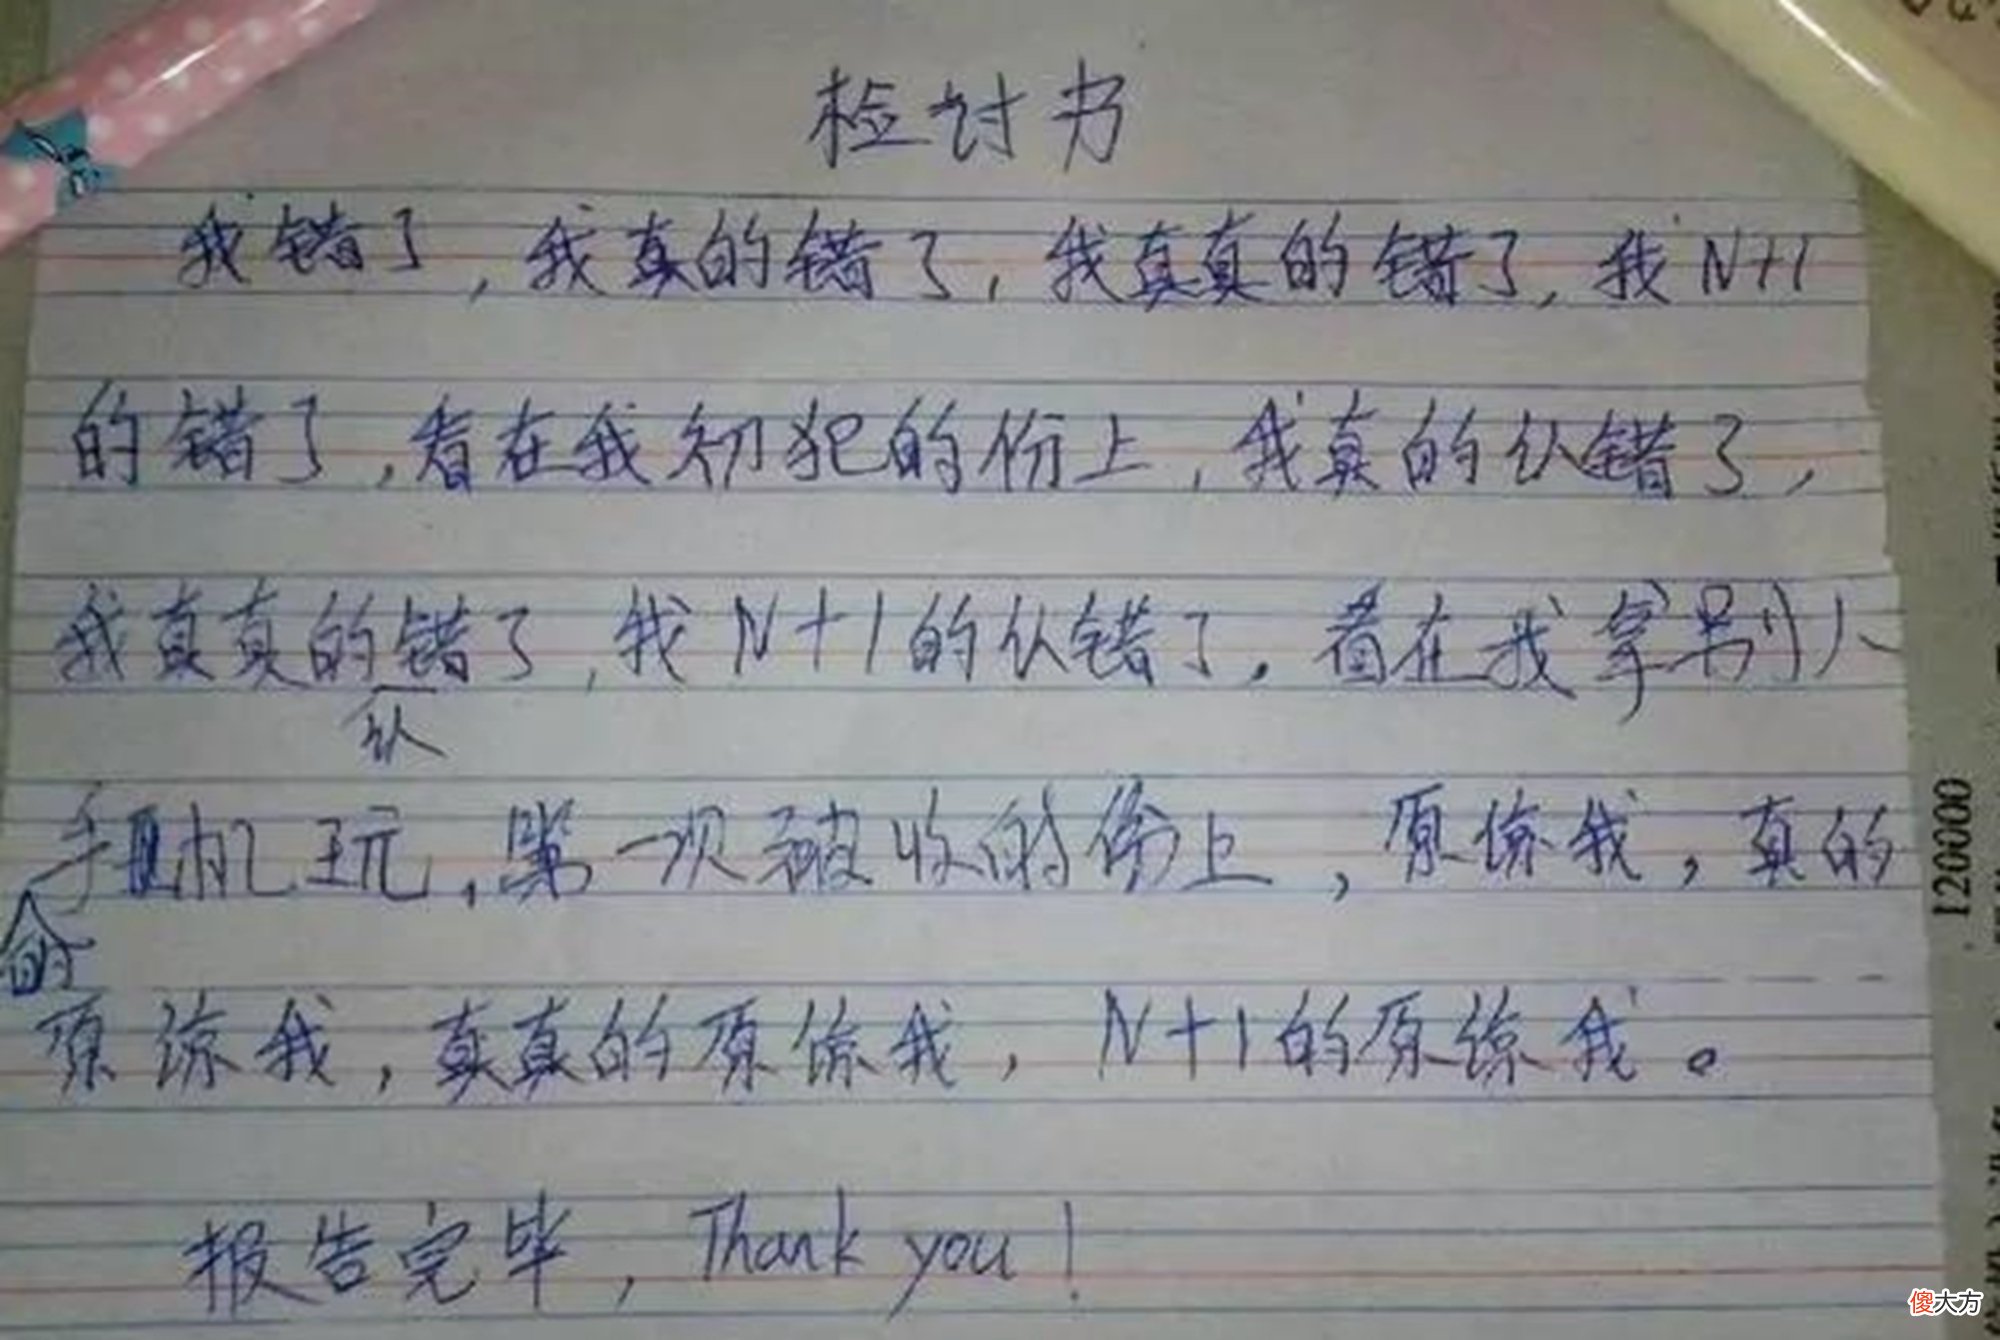 检讨书
我错了，我真的错了，我真真的错了，我N+1
的错了，看在我初犯的份上，我真的认错了，
我真真的错了，我N+1的认错了。看在我拿别人
认
手机玩，第一次被收的份上，原谅我，真的
的
原谅我，真真的原谅我，N+1的原谅我。
报告完毕，Thank you！
120000
傻大方